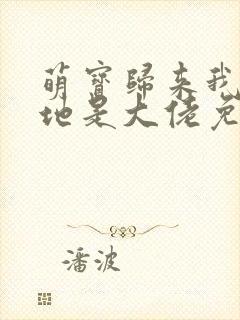 萌寶歸来我
地是大佬免
潘波